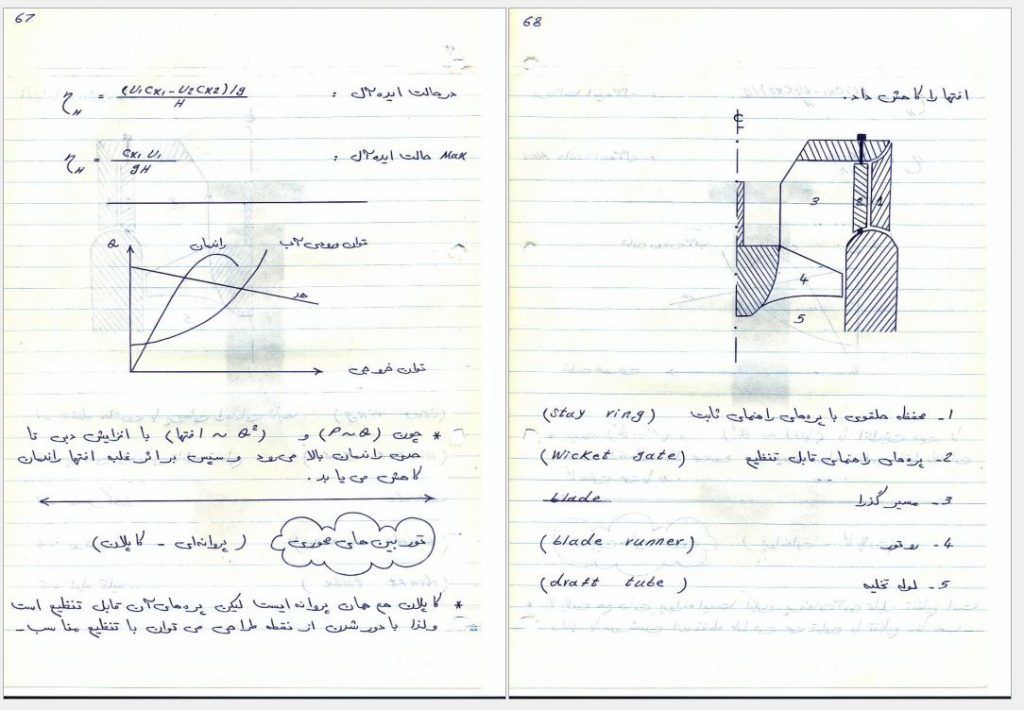 67
در حالت ایده آل : η_H = (U1Cx1-U2Cx2)/g / H
Max حالت ایده آل : η_H = Cx1 U1 / gH
Q
راندمان
توان خروجی
* چون (P~Q) و (افتها ~ Q²) با افزایش دبی تا
حدی راندمان بالا می‌رود و سپس بر اثر غلبه افتها راندمان
کاهش می یابد .
توربین های محوری ( پروانه‌ای - کاپلان )
* کاپلان هم همان پروانه ایست لیکن پره‌های آن قابل تنظیم است
ولذا با دور شدن از نقطه طراحی می توان با تنظیم مناسب -
68
افتها را کاهش داد.
℄
1
2
3
4
5
1- محفظه حلقوی با پره‌های راهنمای ثابت (Stay ring)
2- پره‌های راهنمای قابل تنظیم (Wicket gate)
3- مسیر گذرا blade
4- روتور (blade runner)
5- لوله تخلیه (draft tube)